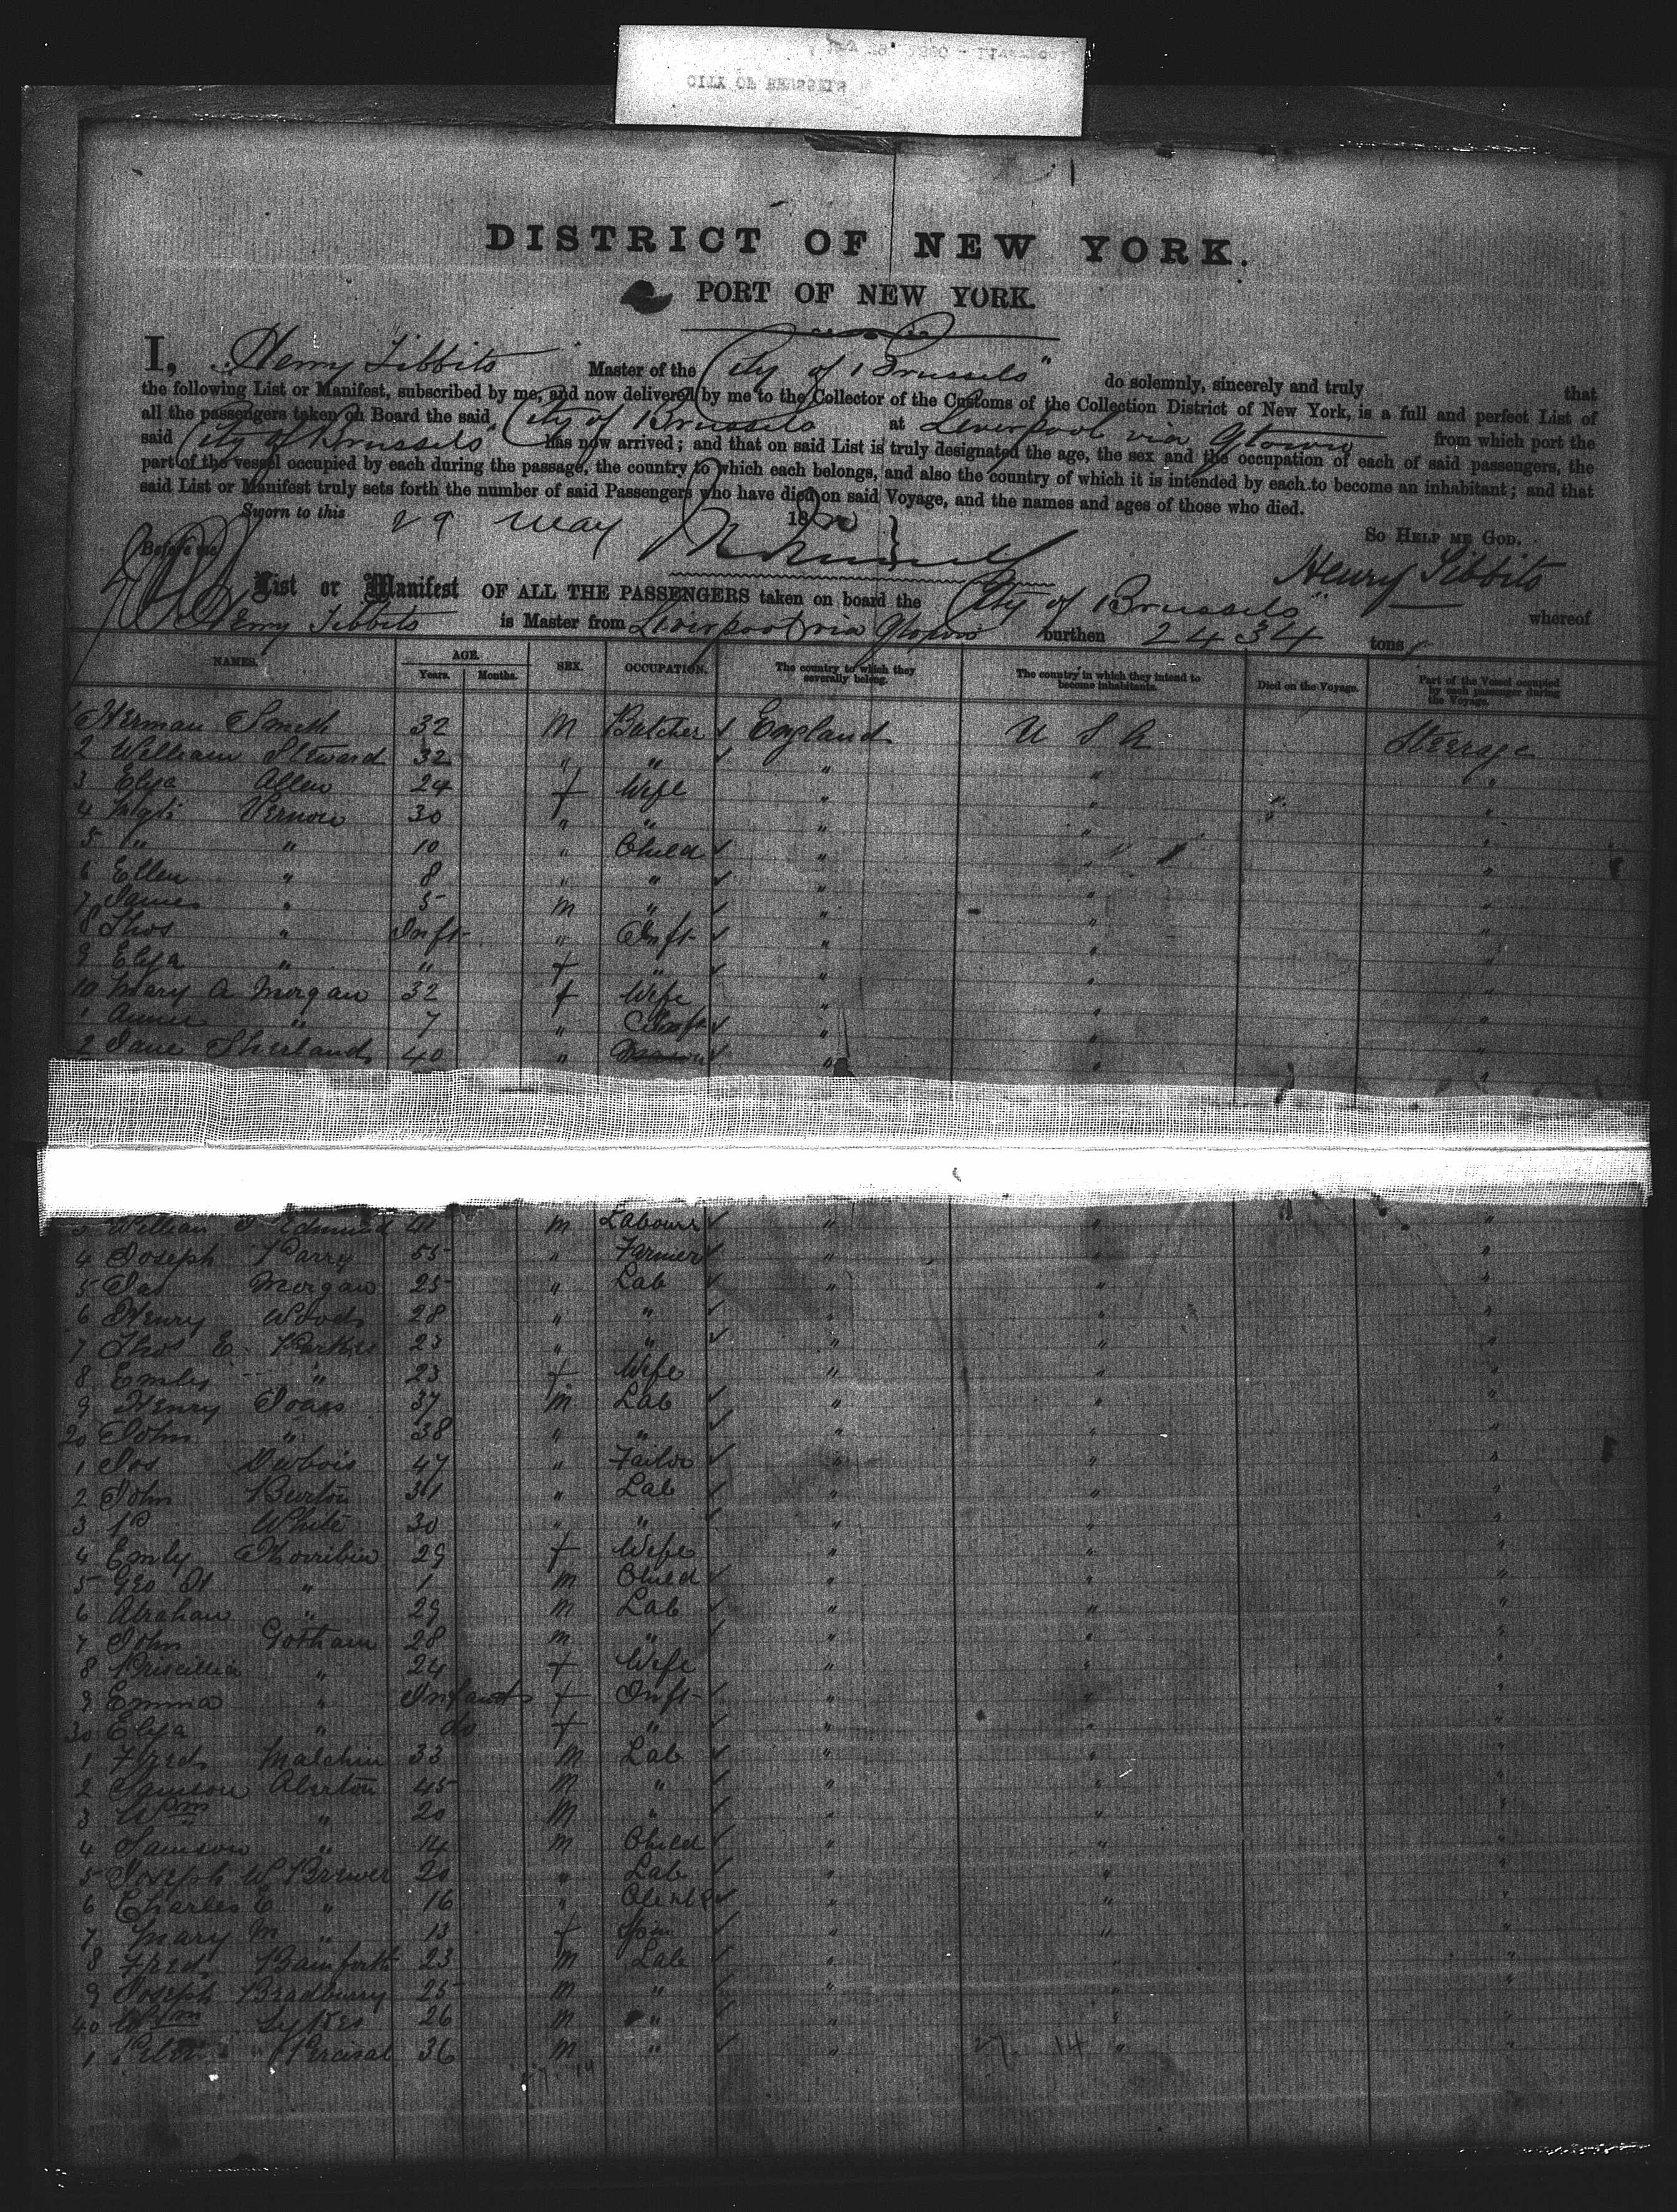 CITY OF BRUSSELS
DISTRICT OF NEW YORK.
PORT OF NEW YORK.
I, Henry Tibbits Master of the "City of Brussels" do solemnly, sincerely and truly that
the following List or Manifest, subscribed by me, and now delivered by me to the Collector of the Customs of the Collection District of New York, is a full and perfect List of
all the passengers taken on Board the said City of Brussels at Liverpool via Qtown from which port the
said "City of Brussels" has now arrived; and that on said List is truly designated the age, the sex and the occupation of each of said passengers, the
part of the vessel occupied by each during the passage, the country to which each belongs, and also the country of which it is intended by each to become an inhabitant; and that
said List or Manifest truly sets forth the number of said Passengers who have died on said Voyage, and the names and ages of those who died.
Sworn to this 29 May 1880 So HELP ME GOD.
Before me Henry Tibbits
List or Manifest OF ALL THE PASSENGERS taken on board the "City of Brussels" whereof
Henry Tibbits is Master from Liverpool via Qtown burthen 2434 tons
NAMES. AGE. SEX. OCCUPATION. The country to which they severally belong. The country in which they intend to become inhabitants. Died on the Voyage. Part of the Vessel occupied by each passenger during the Voyage.
Years. Months.
1 Herman Smith 32 M Butcher England U S A Steerage
2 William Steward 32 " " " " "
3 Eliza Allen 24 f Wife " " "
4 Mgt Vernon 30 " " " " "
5 " " 10 " Child " " "
6 Ellen " 8 " " " " "
7 James " 5 M " " " "
8 Thos " Inft " Inft " " "
9 Eliza " " f " " " "
10 Mary A Morgan 32 f Wife " " "
1 Annie " 7 " " " "
2 Jane Sherland 40 " " " "
3 William J Edmund 41 M Labourer " " "
4 Joseph Parry 55 " Farmer " " "
5 Jas Morgan 25 " Lab " " "
6 Henry Woods 28 " " " " "
7 Thos E. 23 " " " " "
8 Emily " 23 f Wife " " "
9 Henry 37 M Lab " " "
20 John " 38 " " " " "
1 Jos Dubois 47 " Tailor " " "
2 John Burton 31 " Lab " " "
3 P White 30 " " " " "
4 Emily 29 f Wife " " "
5 Geo H " 1 M Child " " "
6 Abraham " 29 M Lab " " "
7 John Gotham 28 M " " " "
8 Priscillia " 24 f Wife " " "
9 Emma " Infants f Inft " " "
30 Eliza " do f " " " "
1 Fred Malchin 33 M Lab " " "
2 Samson Aberton 45 M " " " "
3 Wm " 20 M " " " "
4 Samson " 14 M Child " " "
5 Joseph W Brewer 20 " Lab " " "
6 Charles E " 16 " Clerk " " "
7 Mary M " 13 f Spin " " "
8 Fred Bamforth 23 M Lab " " "
9 Joseph Bradburry 25 M " " " "
40 Wm Sykes 26 M " " " "
1 Percival 36 M " " 27. 14 " "